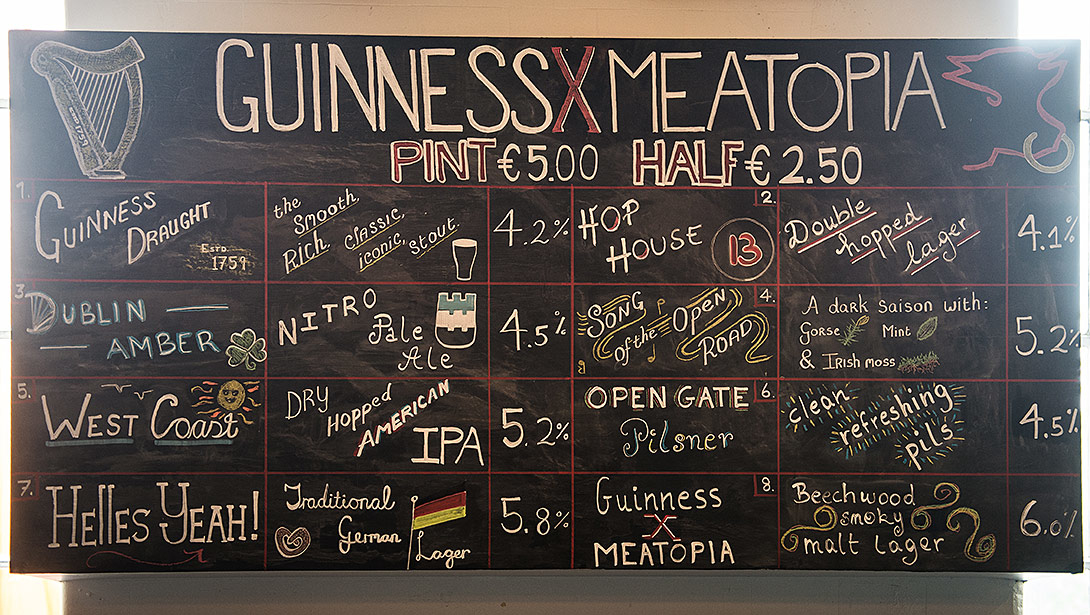 GUINNESS X MEATOPIA
PINT €5.00 HALF € 2.50
1.
GUINNESS
DRAUGHT
ESTD.
1759
the
Smooth,
Rich, classic,
iconic, stout.
4.2%
2.
HOP
HOUSE 13
Double
hopped
lager
4.1%
3.
DUBLIN
AMBER
NITRO
Pale
Ale
4.5%
4.
SONG
Of the Open
ROAD
A dark saison with:
GORSE Mint
& IRish moss
5.2%
5.
WEST COAST
DRY
Hopped
AMERICAN
IPA
5.2%
6.
OPEN GATE
Pilsner
clean
refreshing
pils
4.5%
7.
HElles YEAH!
Traditional
German
Lager
5.8%
8.
Guinness
X
MEATOPIA
Beechwood
smoky
malt lager
6.0%